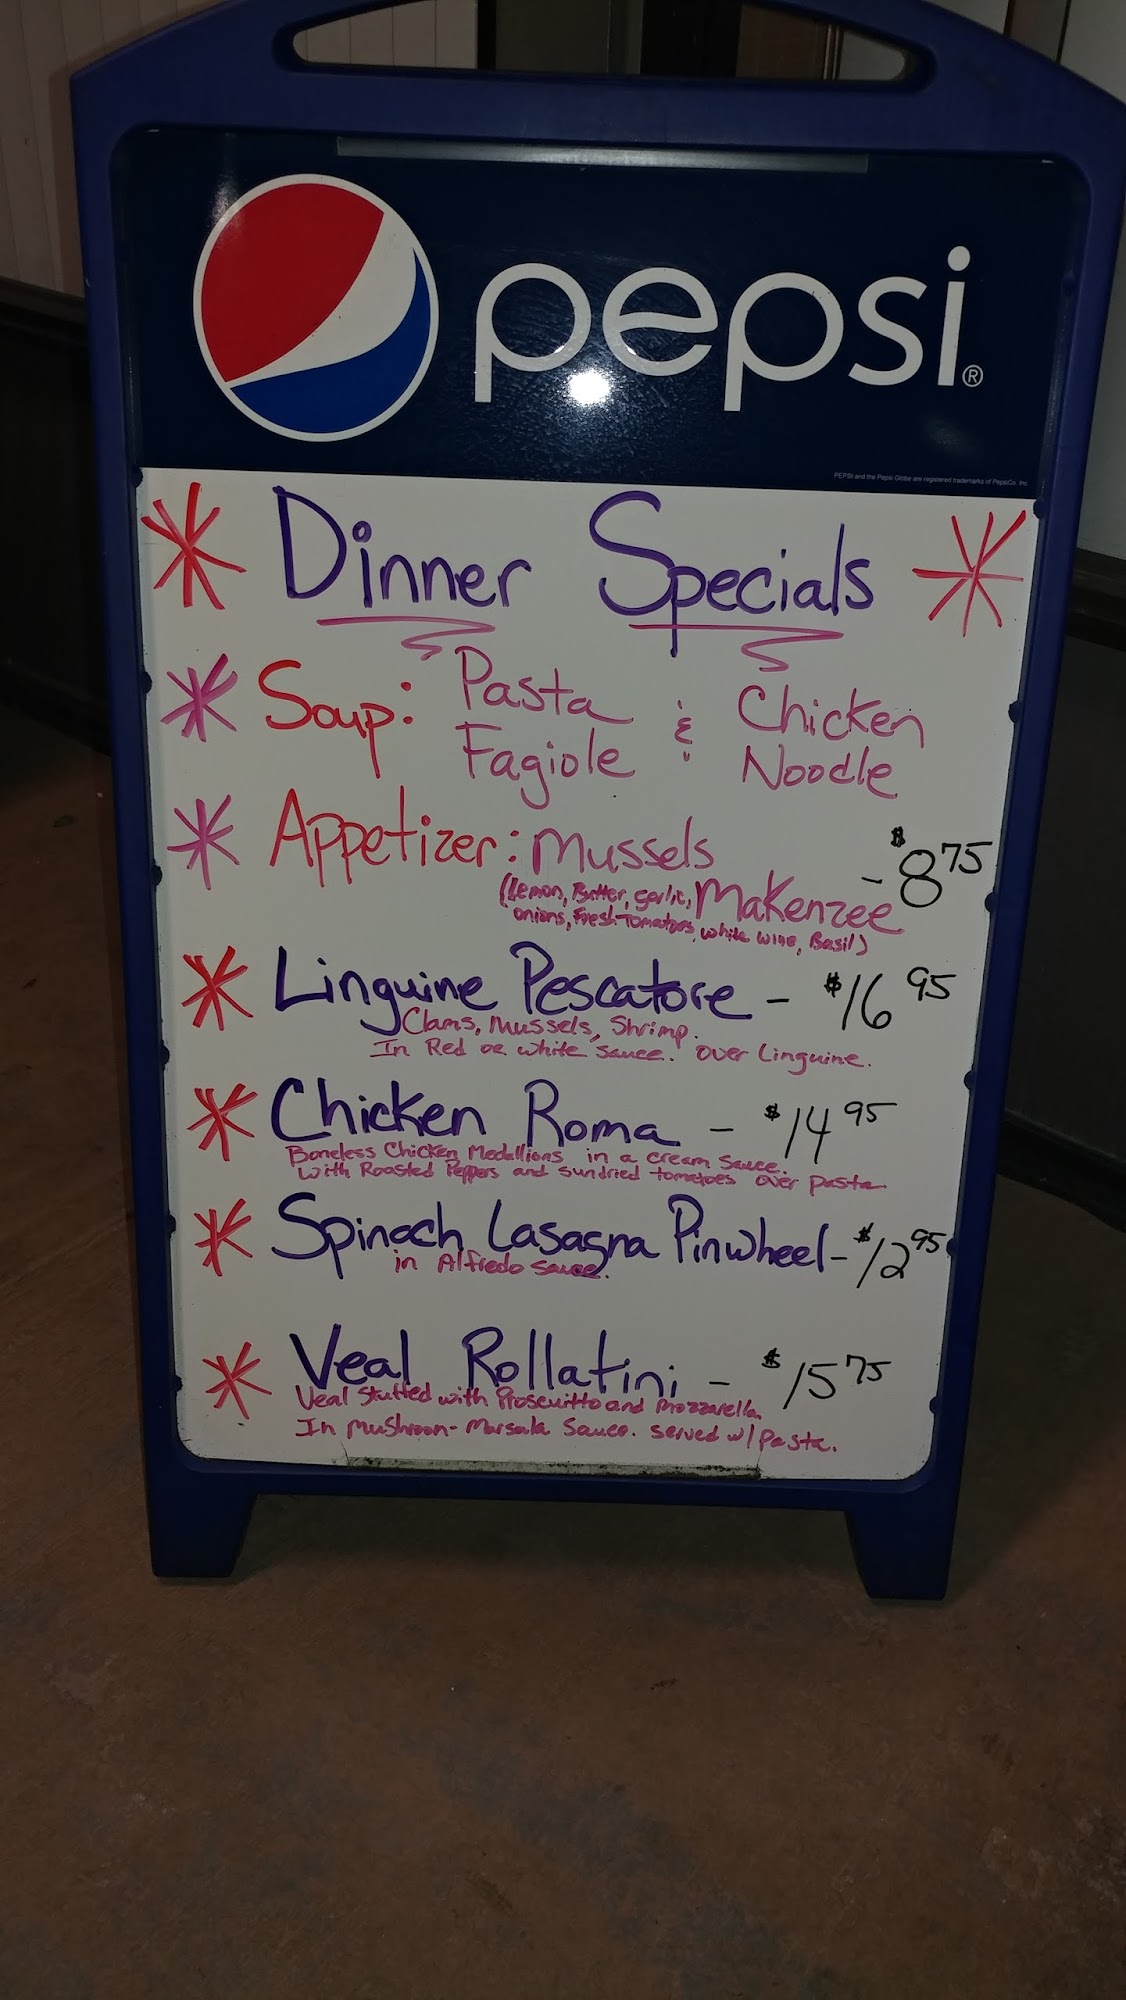 pepsi®
PEPSI and the Pepsi Globe are registered trademarks of PepsiCo. Inc
Dinner Specials
Soup: Pasta Fagiole & Chicken Noodle
Appetizer: Mussels Makenzee - $8.75
(Lemon, Butter, garlic,
onions, Fresh Tomatoes, white wine, Basil)
Linguine Pescatore - $16 95
Clams, Mussels, Shrimp.
In Red or white sauce. over Linguine.
Chicken Roma - $14 95
Boneless Chicken Medallions in a cream sauce.
with Roasted Peppers and sundried tomatoes over pasta
Spinach Lasagna Pinwheel - $12 95
in Alfredo sauce.
Veal Rollatini - $15 75
Veal Stuffed with Proscuitto and mozzarella
In mushroom-Marsala Sauce. served w/ pasta.